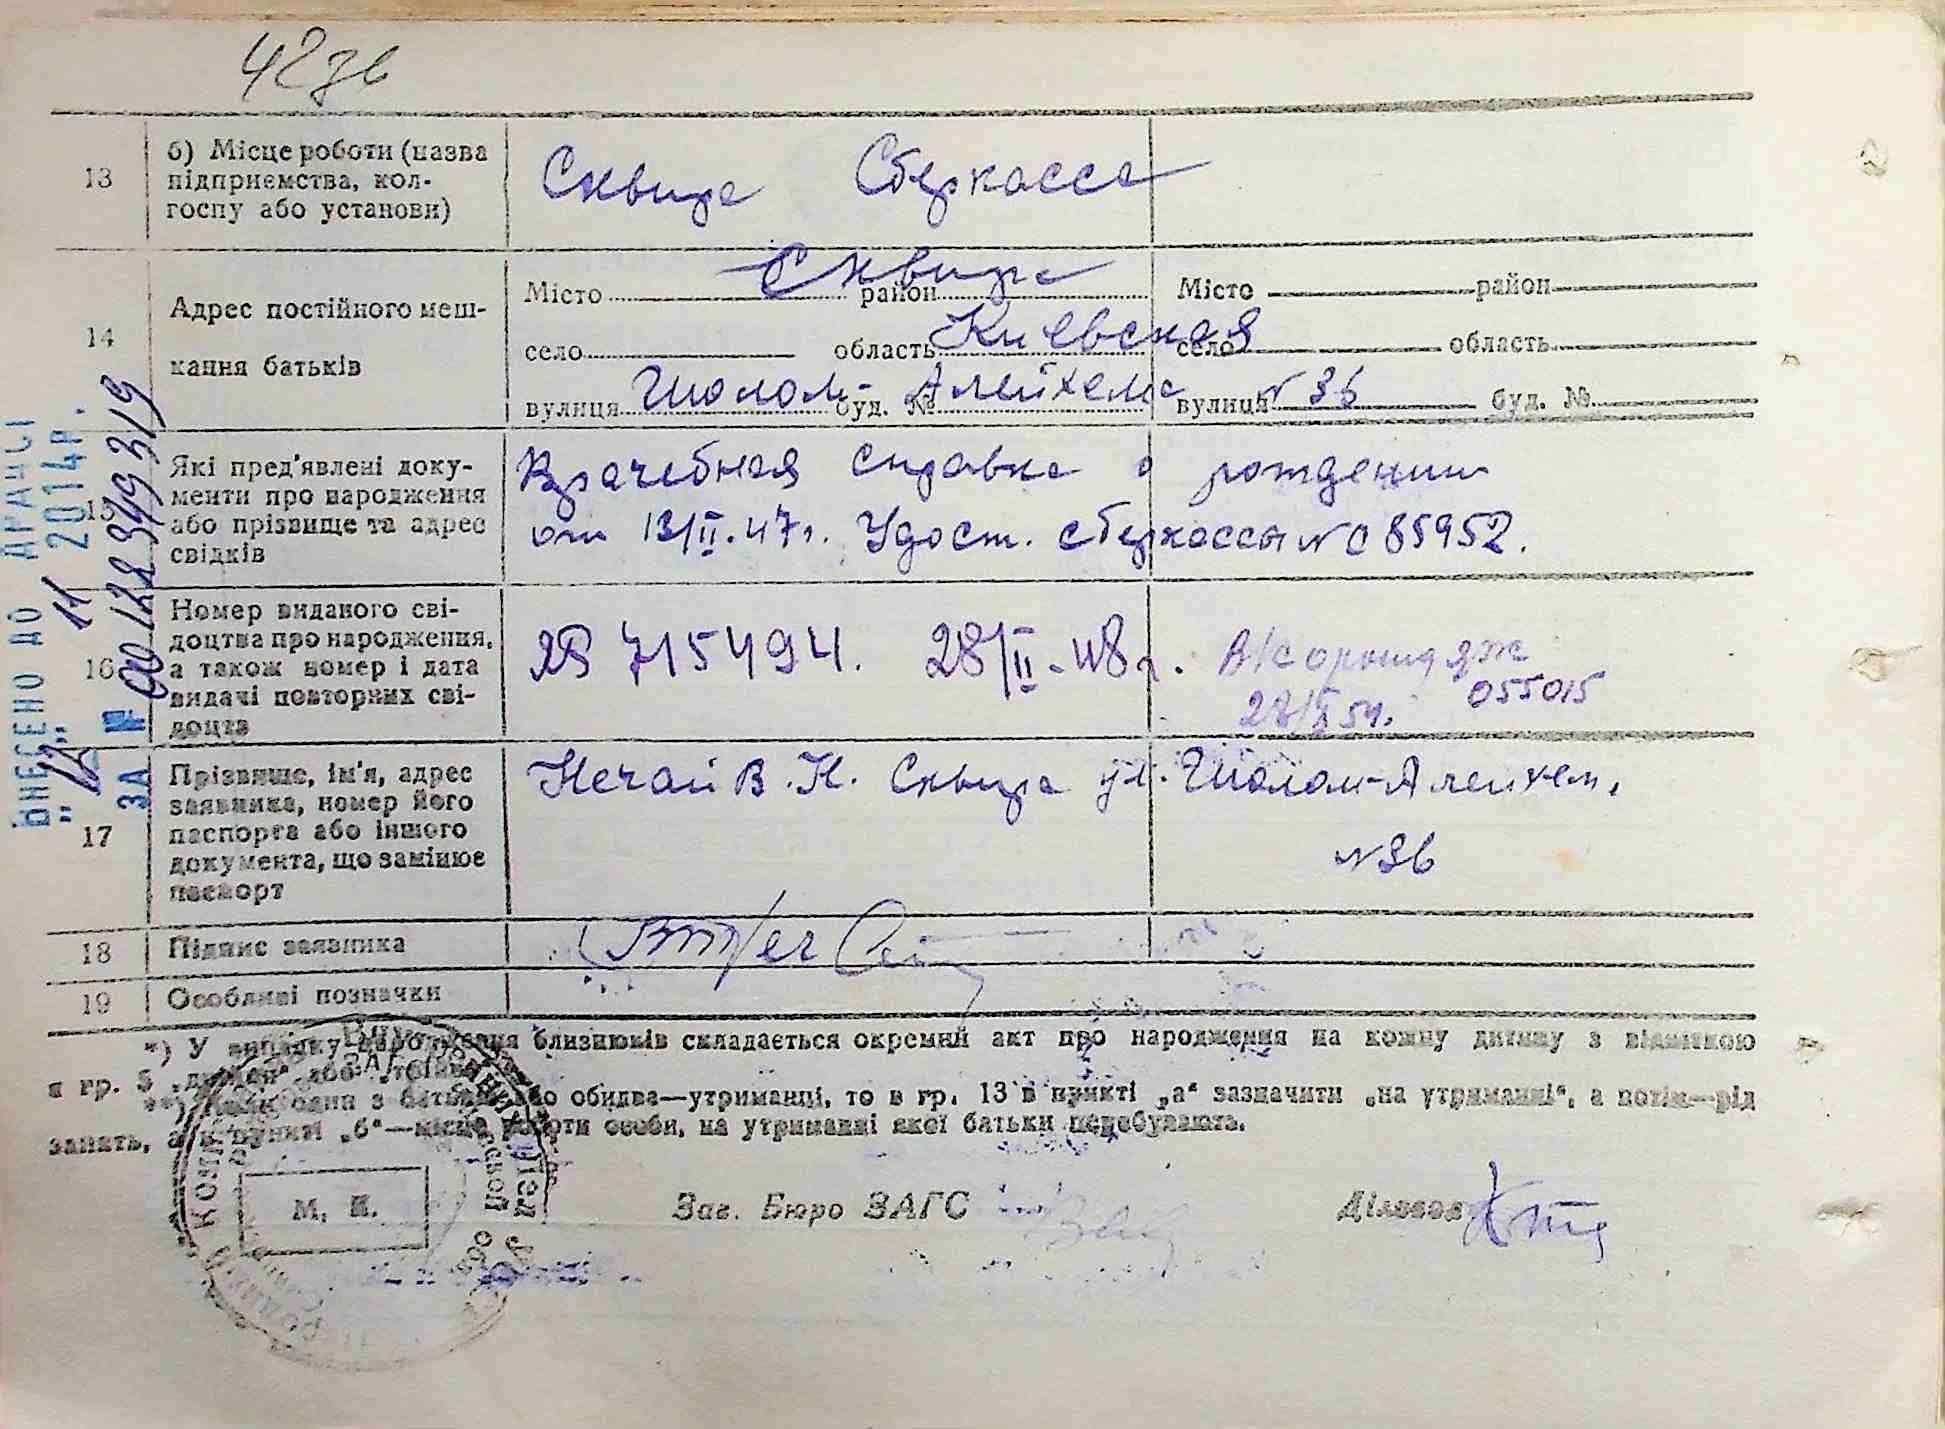 42зв
13
б) Місце роботи (назва
підприємства, кол-
госпу або установи)
Сквира Сберкасса
14
Адрес постійного меш-
кання батьків
Місто Сквира район
село область Киевская
вулиця Шолом- буд. № Алейхема
Місто район
село область
вулиця N 36 буд. №
15
Які пред'явлені доку-
менти про народження
або прізвище та адрес
свідків
Врачебная справка о рождении
от 13/II.47г. Удост. сберкассы N С 85952.
16
Номер виданого сві-
доцтва про народження,
а також номер і дата
видачі повторних сві-
доцтв
715494. 28/II-48г.
055015
17
Прізвище, ім'я, адрес
заявника, номер його
паспорта або іншого
документа, що замінює
паспорт
Нечай В. Н. Сквира ул. Шолом-Алейхем,
N 36
18
Підпис заявника
19
Особливі позначки
*) У випадку народження близнюків складається окремий акт про народження на кожну дитину з відміткою
в гр. 5 „двійня“ або „трійня“
**) Якщо один з батьків або обидва—утриманці, то в гр. 13 в пункті „а“ зазначити „на утриманні“, а потім—рід
занять, а в пункті „б“—місце роботи особи, на утриманні якої батьки перебувають.
М. П.
Заг. Бюро ЗАГС
Діловод
ВНЕСЕНО ДО ДРАЦСІ
„12„ 11 2014р.
ЗА № 00122379319